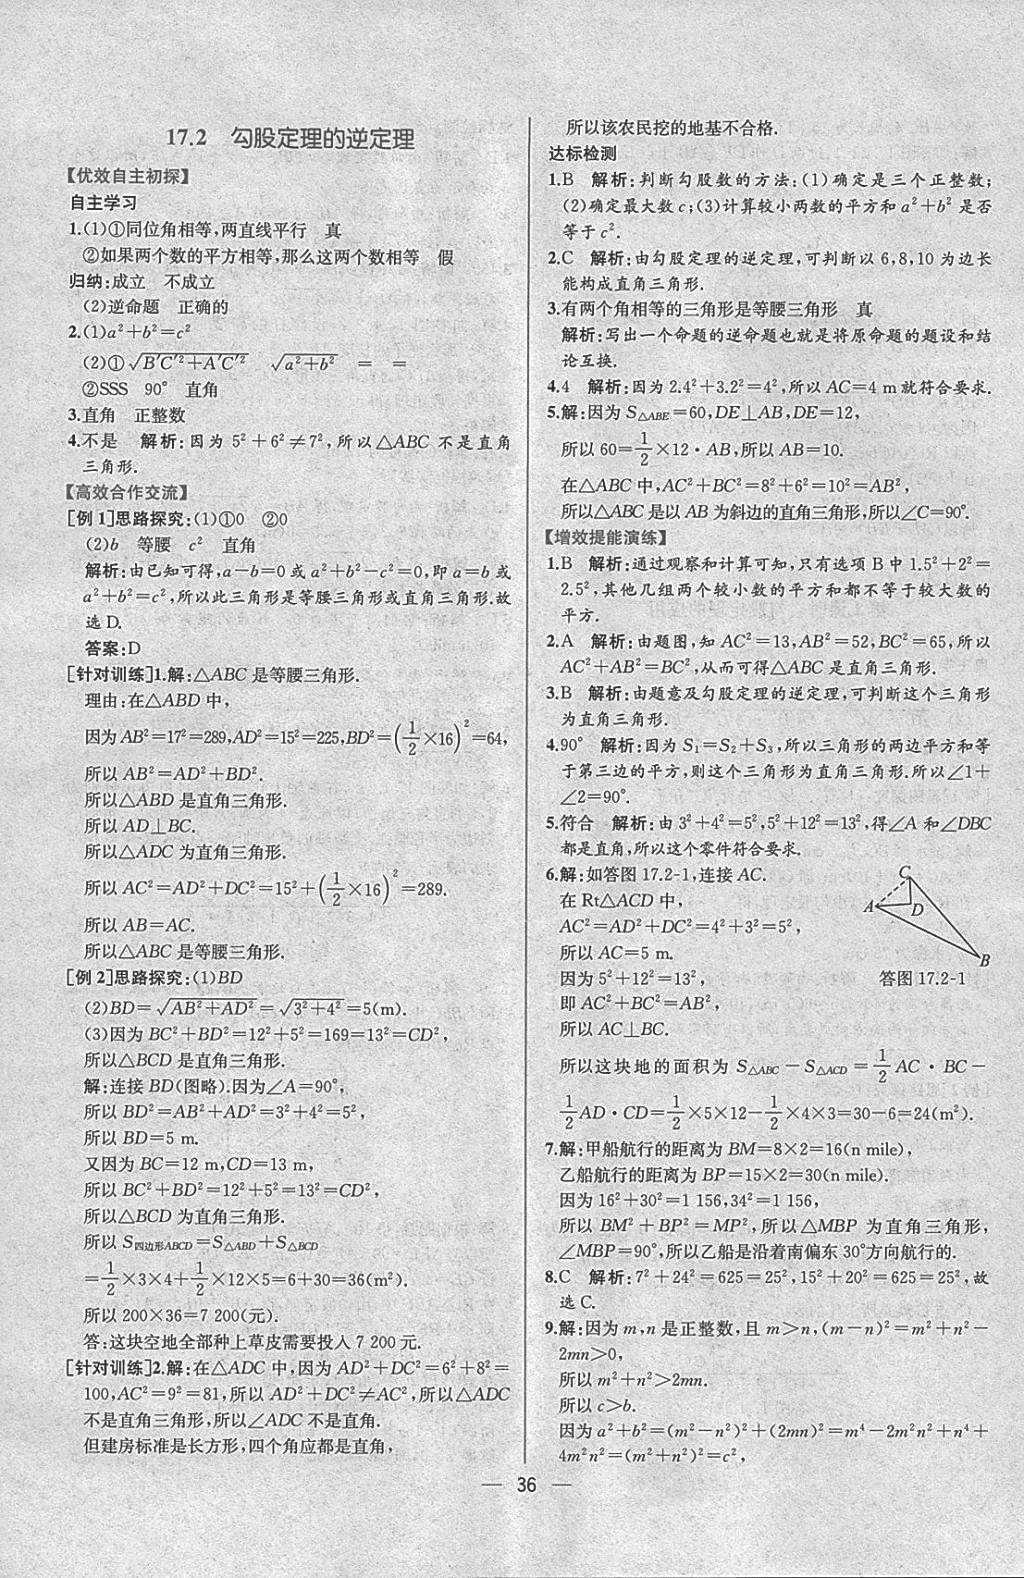 17.2 勾股定理的逆定理
【优效自主初探】
自主学习
1.(1)①同位角相等,两直线平行 真
②如果两个数的平方相等,那么这两个数相等 假
归纳:成立 不成立
(2)逆命题 正确的
2.(1)a²+b²=c²
(2)①√(B′C′²+A′C′²) √(a²+b²) = =
②SSS 90° 直角
3.直角 正整数
4.不是 解析:因为 5²+6²≠7²,所以△ABC 不是直角
三角形.
【高效合作交流】
[例 1]思路探究:(1)①0 ②0
(2)b 等腰 c² 直角
解析:由已知可得,a-b=0或a²+b²-c²=0,即a=b或
a²+b²=c²,所以此三角形是等腰三角形或直角三角形.故
选 D.
答案:D
[针对训练]1.解:△ABC 是等腰三角形.
理由:在△ABD 中,
因为 AB²=17²=289,AD²=15²=225,BD²=(1/2×16)²=64,
所以 AB²=AD²+BD².
所以△ABD 是直角三角形.
所以 AD⊥BC.
所以△ADC 为直角三角形.
所以 AC²=AD²+DC²=15²+(1/2×16)²=289.
所以 AB=AC.
所以△ABC 是等腰三角形.
[例 2]思路探究:(1)BD
(2)BD=√(AB²+AD²)=√(3²+4²)=5(m).
(3)因为 BC²+BD²=12²+5²=169=13²=CD²,
所以△BCD 是直角三角形.
解:连接 BD(图略).因为∠A=90°,
所以 BD²=AB²+AD²=3²+4²=5²,
所以 BD=5 m.
又因为 BC=12 m,CD=13 m,
所以 BC²+BD²=12²+5²=13²=CD².
所以△BCD 为直角三角形.
所以 S四边形ABCD=S△ABD+S△BCD
=1/2×3×4+1/2×12×5=6+30=36(m²).
所以 200×36=7 200(元).
答:这块空地全部种上草皮需要投入 7 200 元.
[针对训练]2.解:在△ADC 中,因为 AD²+DC²=6²+8²=
100,AC²=9²=81,所以 AD²+DC²≠AC²,所以△ADC
不是直角三角形,所以∠ADC 不是直角.
但建房标准是长方形,四个角应都是直角,
所以该农民挖的地基不合格.
达标检测
1.B 解析:判断勾股数的方法:(1)确定是三个正整数;
(2)确定最大数 c;(3)计算较小两数的平方和 a²+b² 是否
等于 c².
2.C 解析:由勾股定理的逆定理,可判断以 6,8,10 为边长
能构成直角三角形.
3.有两个角相等的三角形是等腰三角形 真
解析:写出一个命题的逆命题也就是将原命题的题设和结
论互换.
4.4 解析:因为 2.4²+3.2²=4²,所以 AC=4 m就符合要求.
5.解:因为 S△ABE=60,DE⊥AB,DE=12,
所以 60=1/2×12·AB,所以 AB=10.
在△ABC 中,AC²+BC²=8²+6²=10²=AB²,
所以△ABC 是以 AB 为斜边的直角三角形,所以∠C=90°.
【增效提能演练】
1.B 解析:通过观察和计算可知,只有选项 B 中 1.5²+2²=
2.5²,其他几组两个较小数的平方和都不等于较大数的
平方.
2.A 解析:由题图,知 AC²=13,AB²=52,BC²=65,所以
AC²+AB²=BC²,从而可得△ABC 是直角三角形.
3.B 解析:由题意及勾股定理的逆定理,可判断这个三角形
为直角三角形.
4.90° 解析:因为 S₁=S₂+S₃,所以三角形的两边平方和等
于第三边的平方,则这个三角形为直角三角形.所以∠1+
∠2=90°.
5.符合 解析:由 3²+4²=5²,5²+12²=13²,得∠A 和∠DBC
都是直角,所以这个零件符合要求.
6.解:如答图 17.2-1,连接 AC.
在 Rt△ACD 中,
AC²=AD²+DC²=4²+3²=5²,
所以 AC=5 m.
因为 5²+12²=13²,
即 AC²+BC²=AB²,
所以 AC⊥BC.
C
A
D
B
答图 17.2-1
所以这块地的面积为 S△ABC-S△ACD=1/2 AC·BC-
1/2 AD·CD=1/2×5×12-1/2×4×3=30-6=24(m²).
7.解:甲船航行的距离为 BM=8×2=16(n mile),
乙船航行的距离为 BP=15×2=30(n mile).
因为 16²+30²=1 156,34²=1 156,
所以 BM²+BP²=MP²,所以△MBP 为直角三角形,
∠MBP=90°,所以乙船是沿着南偏东 30°方向航行的.
8.C 解析:7²+24²=625=25²,15²+20²=625=25²,故
选 C.
9.解:因为 m,n 是正整数,且 m>n,(m-n)²=m²+n²-
2mn>0,
所以 m²+n²>2mn.
所以 c>b.
因为 a²+b²=(m²-n²)²+(2mn)²=m⁴-2m²n²+n⁴+
4m²n²=(m²+n²)²=c²,
— 36 —